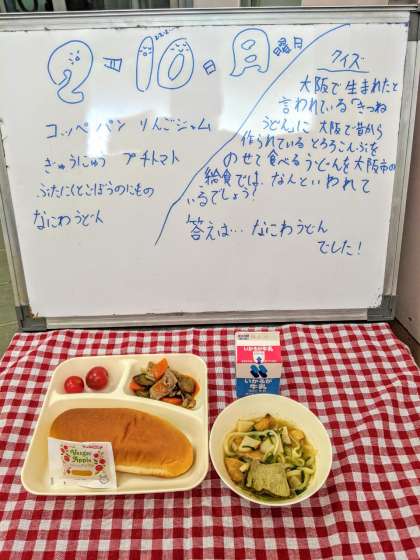 2月10日月曜日
コッペパン りんごジャム
ぎゅうにゅう プチトマト
ぶたにくとごぼうのにもの
なにわうどん
クイズ
大阪で生まれたと
言われている「きつね
うどん」に大阪で昔から
作られているとろろこんぶを
のせて食べるうどんを大阪市の
給食では、なんといわれて
いるでしょう?
答えは… なにわうどん
でした!
いかるが牛乳
いかるが
牛乳
Apple